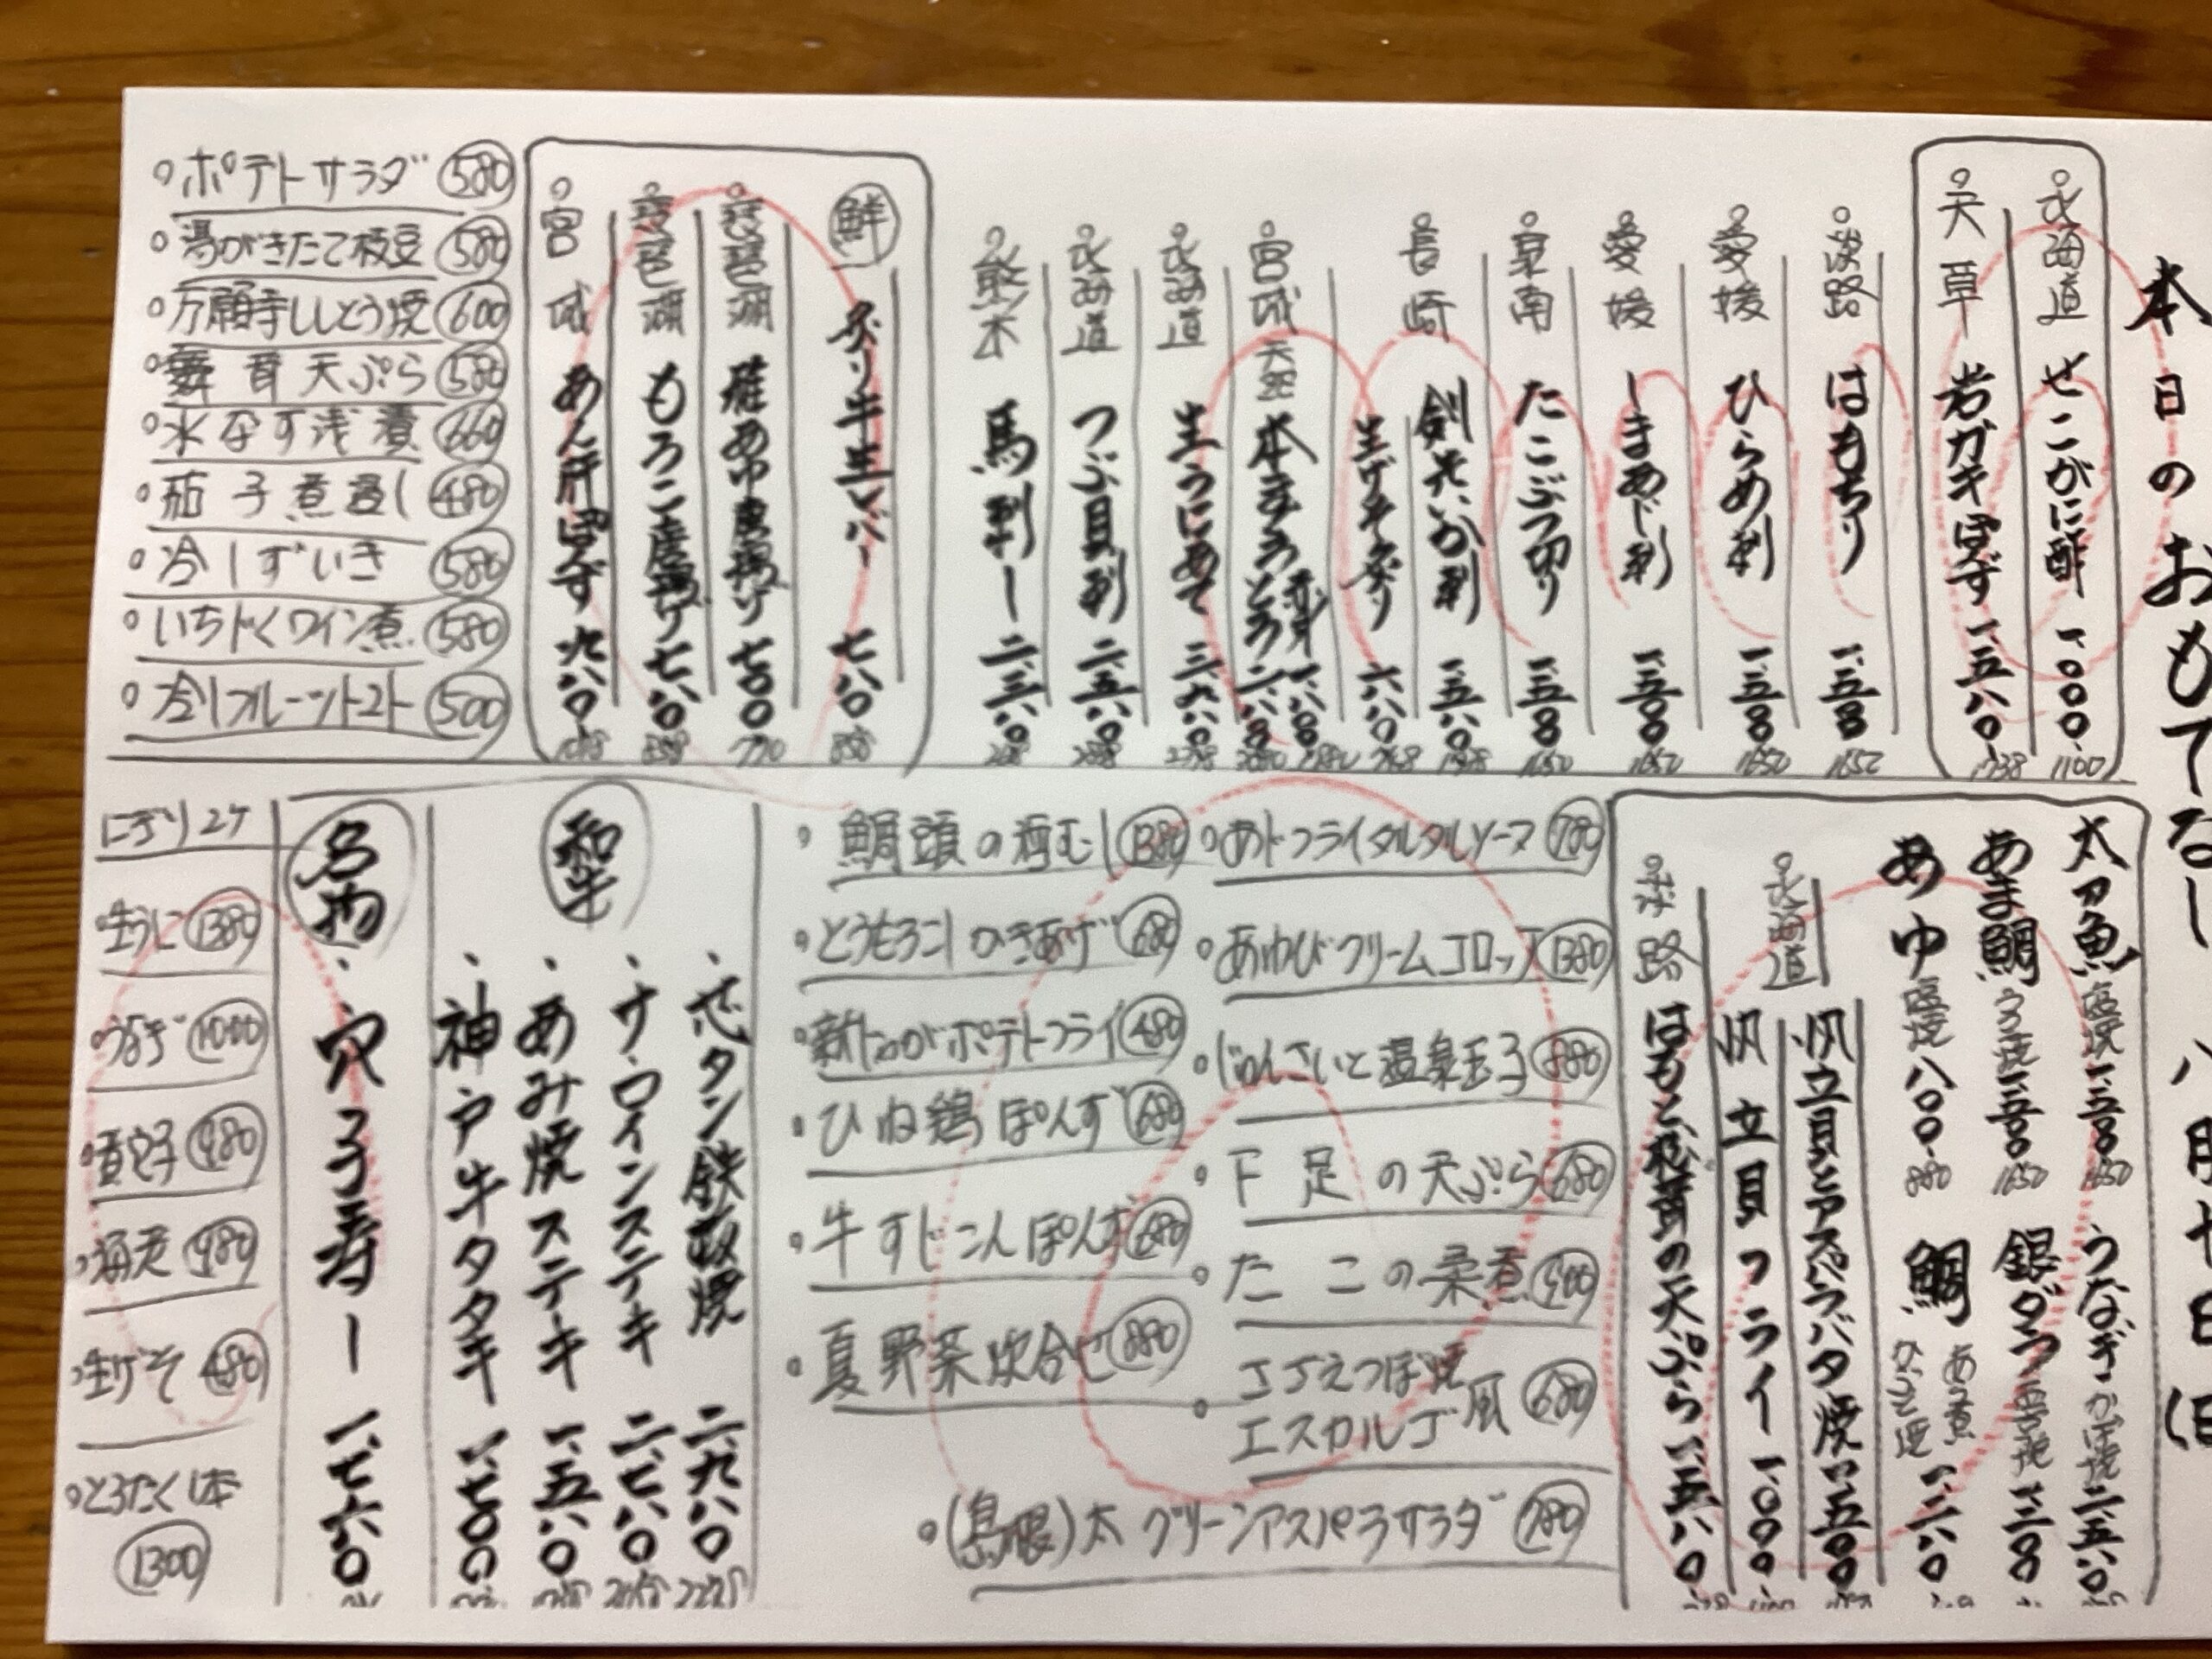 本日のおもてなし 八月廿七日(日
北海道 せこがに酢 一、〇〇〇 1100
天草 岩ガキぽんず 一、五八〇 1738
淡路 はもちり 一、五〇〇 1650
愛媛 ひらめ刺 一、五〇〇 1650
愛媛 しまあじ刺 一、五〇〇 1650
泉南 たこぶつ切り 一、五〇〇 1650
長崎 剣先いか刺 一、五八〇
生げそ炙り 六八〇 748
宮城 天然 本まぐろ
赤身 一、八〇〇
とろ 二、八〇〇
北海道 生うにあて
北海道 つぶ貝刺 二、五八〇
熊本 馬刺し 二、三八〇
鮮 炙り牛生レバー 七八〇 858
琵琶湖 稚あゆ唐揚げ 七〇〇 770
琵琶湖 もろこ唐揚げ 七八〇 858
宮城 あん肝ぽんず 九八〇
・ポテトサラダ 580
・湯がきたて枝豆 580
・万願寺ししとう焼 600
・舞茸天ぷら 580
・水なす浅漬 660
・茄子煮浸し 480
・冷しずいき 580
・いちじくワイン煮 580
・冷しフルーツトマト 500
太刀魚 塩焼 一、五〇〇 1650
うなぎ かば焼 二、五八〇
あま鯛 うろこ焼 一、五〇〇 1650
銀ダラ
あゆ 塩焼 八〇〇 880
鯛 あら煮 かぶと焼 一、二八〇
北海道 帆立貝とアスパラバタ焼 一、五〇〇
帆立貝フライ 一、〇〇〇 1100
淡路 はもと松茸の天ぷら 一、五八〇
・あじフライタルタルソース 780
・あわびクリームコロッケ 1380
・じゅんさいと温泉玉子 880
・下足の天ぷら 680
・たこの柔煮
・つぶ焼
エスカルゴ風 680
・(島根)太グリーンアスパラサラダ 780
・鯛頭の酒むし 1380
・とうもろこしかき揚げ 680
・新じゃがポテトフライ 480
・ひね鶏ぽんず 680
・牛すじこんぽんず 680
・夏野菜炊合せ 880
和牛
・芯タン鉄板焼 二、九八〇
・サーロインステーキ 二、七八〇
・あみ焼ステーキ 一、五八〇
・神戸牛タタキ 一、七〇〇
名物
・穴子寿し 一、七六〇
にぎり2ケ
・生うに 1380
・うなぎ 1000
・煮穴子 980
・海老 980
・生げそ 480
・とろたく1本
1300